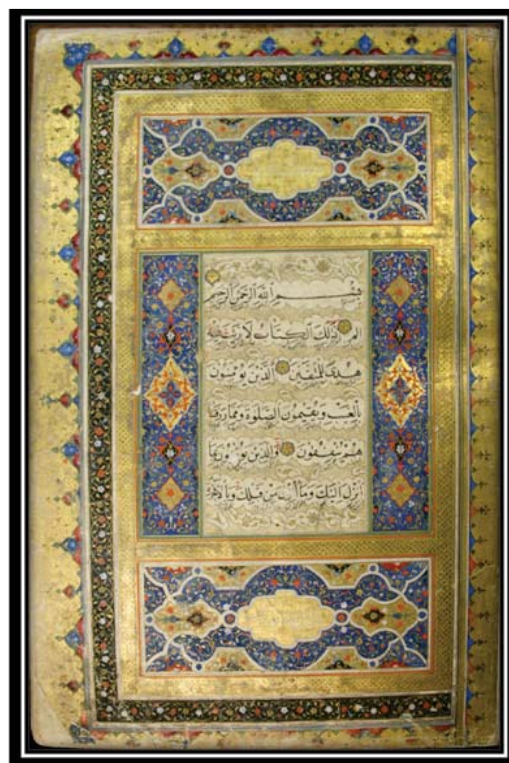 بِسْمِ اللَّهِ الرَّحْمَنِ الرَّحِيمِ
الم ذَلِكَ الْكِتَابُ لَا رَيْبَ فِيهِ
هُدًى لِلْمُتَّقِينَ الَّذِينَ يُؤْمِنُونَ
بِالْغَيْبِ وَيُقِيمُونَ الصَّلَوةَ وَمِمَّا رَزَقْنَا
هُمْ يُنْفِقُونَ وَالَّذِينَ يُؤْمِنُونَ بِمَا
أُنْزِلَ إِلَيْكَ وَمَا أُنْزِلَ مِنْ قَبْلِكَ وَبِالْآخِرَةِ